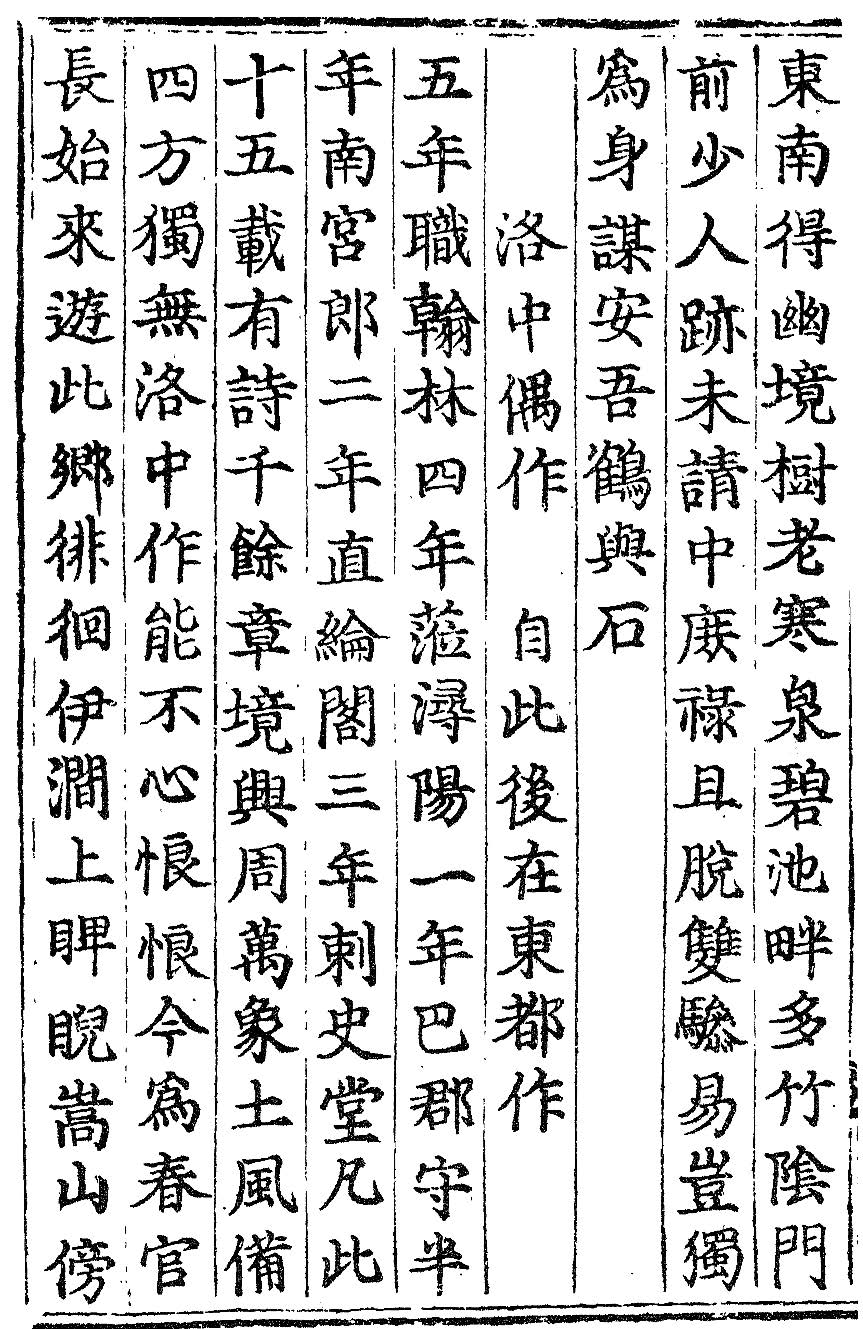 東南得幽境樹老寒泉碧池畔多竹陰門
前少人跡未請中庻祿且脫雙驂易豈獨
爲身謀安吾鶴與石
洛中偶作 自此後在東都作
五年職翰林四年蒞潯陽一年巴郡守半
年南宮郎二年直綸閣三年刺史堂凡此
十五載有詩千餘章境興周萬象土風備
四方獨無洛中作能不心悢悢今爲春官
長始來遊此鄉徘徊伊澗上睥睨嵩山傍